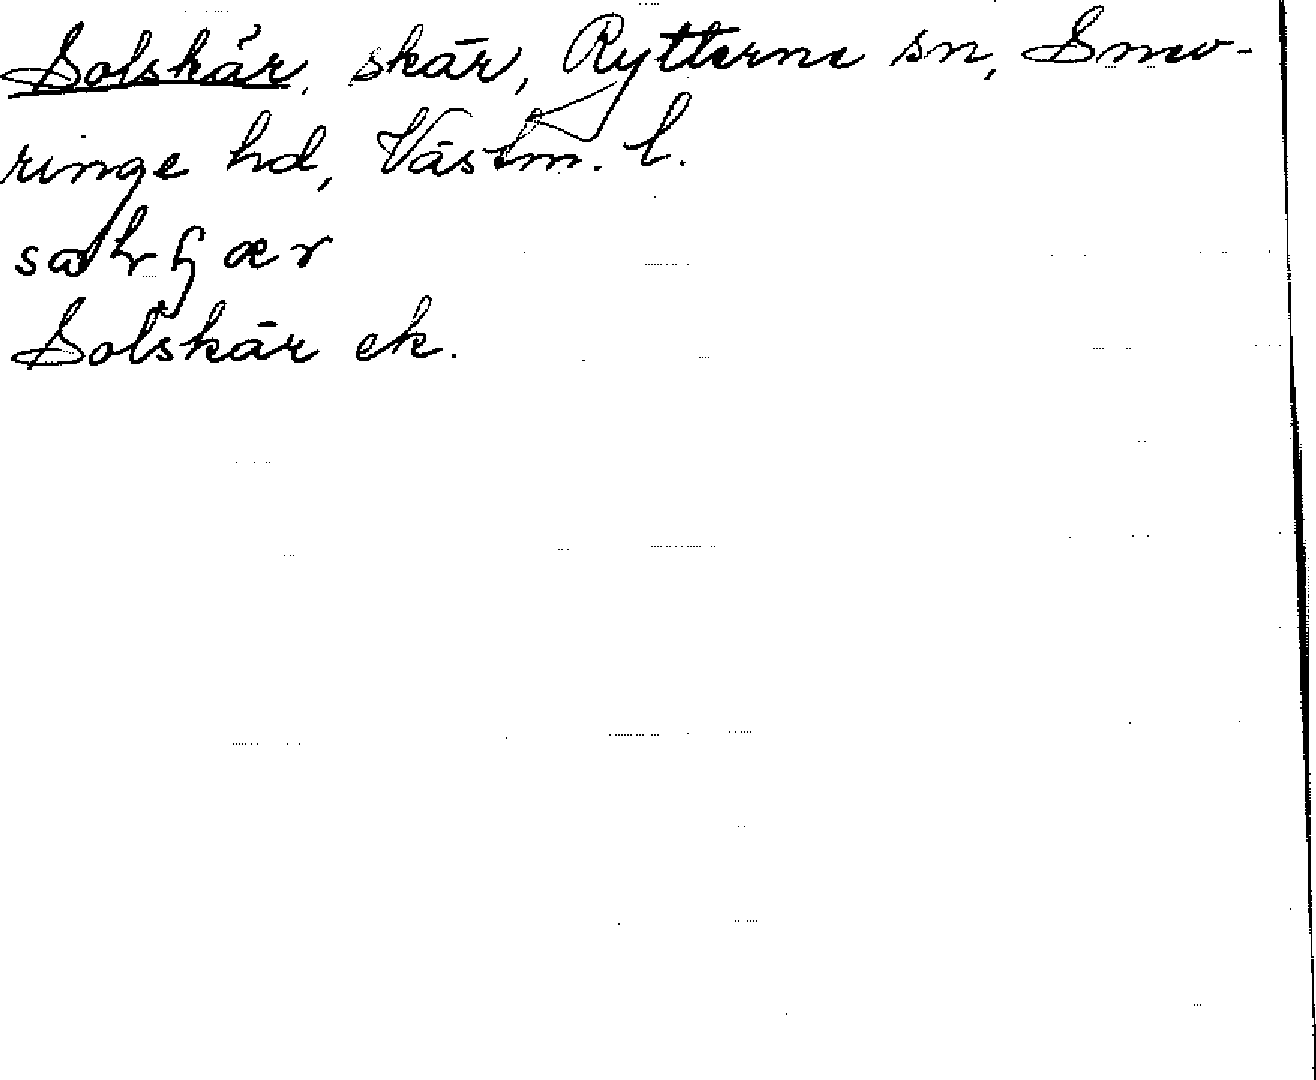 Solskär, skär, Rytterne sn, Snev-
ringe hd, Västm. l.
Solskär ek.